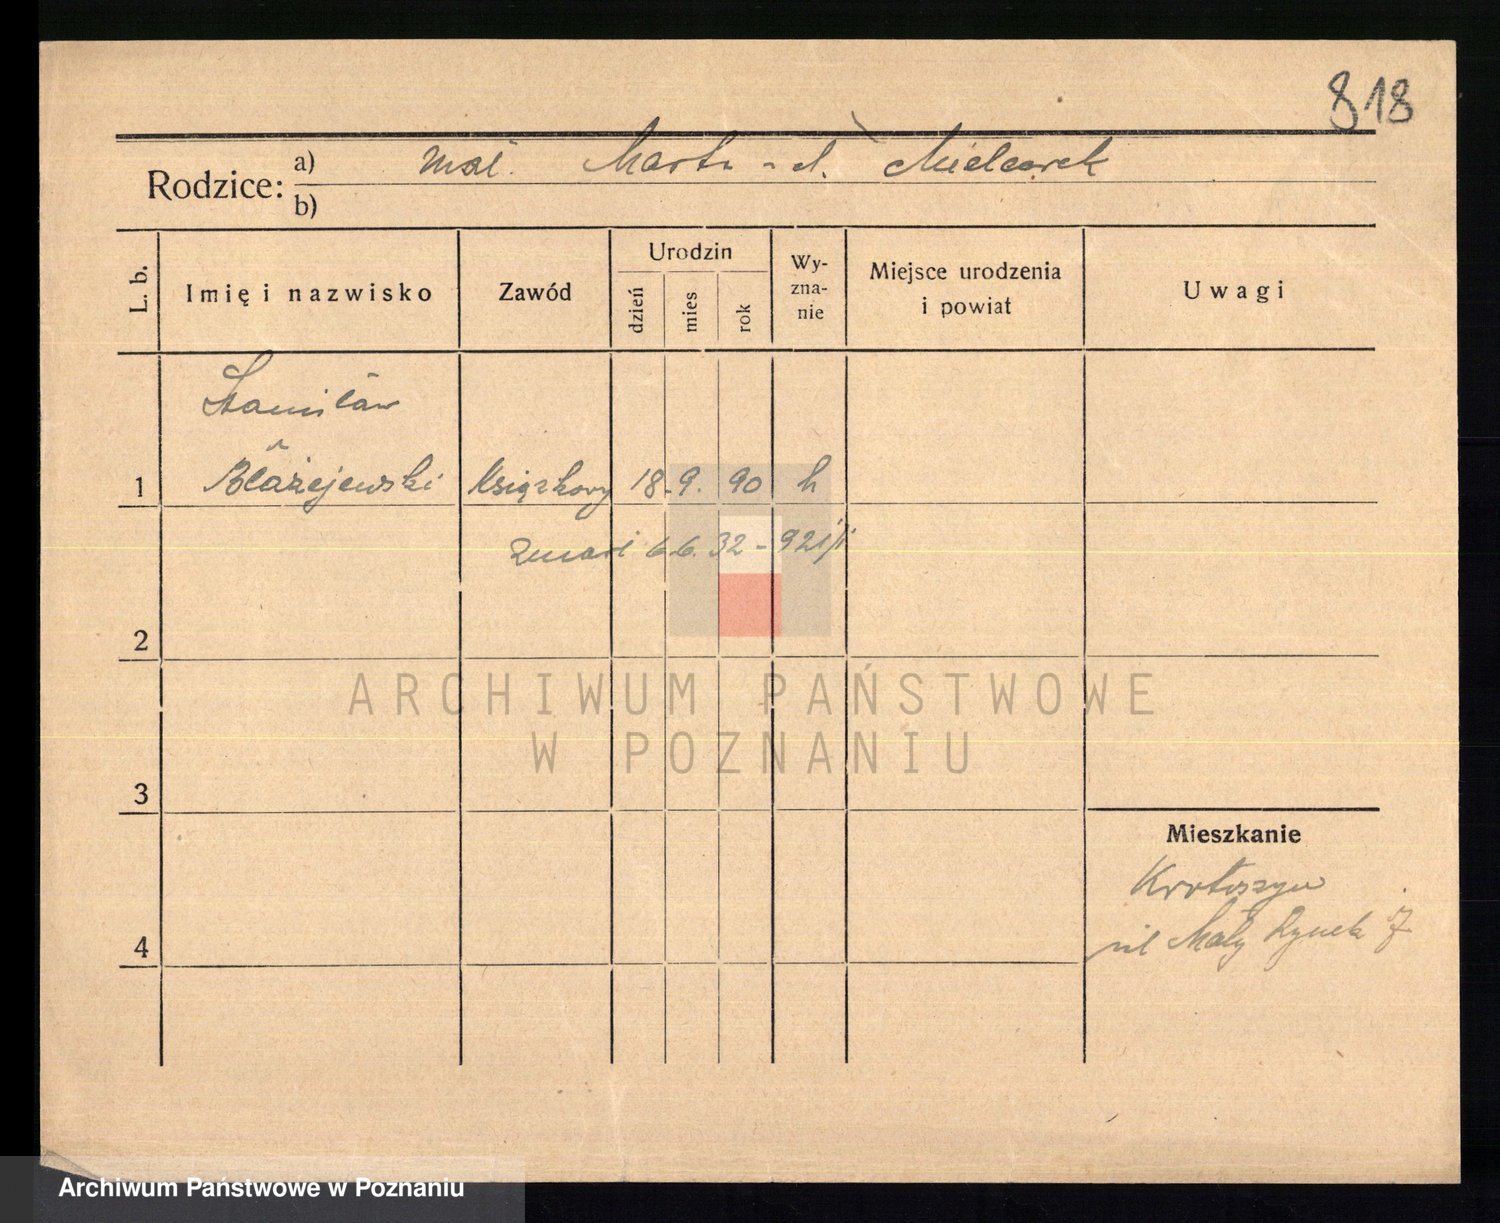 818
Rodzice: a) Marta Mielcarek
b)
L. b.
Imię i nazwisko
Zawód
Urodzin
dzień
mies
rok
Wy-
zna-
nie
Miejsce urodzenia
i powiat
Uwagi
Stanisław
1 Błażejewski Książkowy 18. 9. 90
zmarł 6.6. 32 - 921/
2
ARCHIWUM PAŃSTWOWE
W POZNANIU
3
Mieszkanie
Krotoszyn
4 Mały Rynek 7
Archiwum Państwowe w Poznaniu